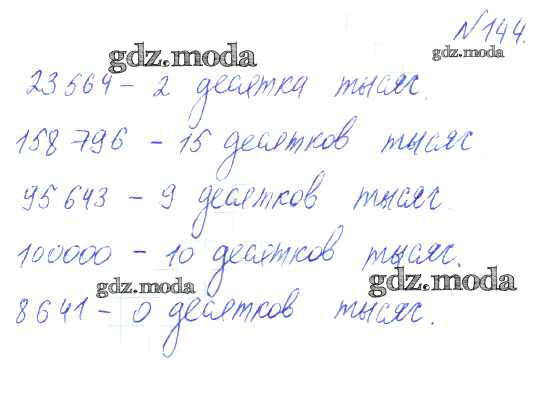 №144.
gdz.moda
gdz.moda
23564 – 2 десятка тысяч.
158 796 – 15 десятков тысяч
95 643 – 9 десятков тысяч.
100000 – 10 десятков тысяч.
gdz.moda
gdz.moda
8641 – 0 десятков тысяч.